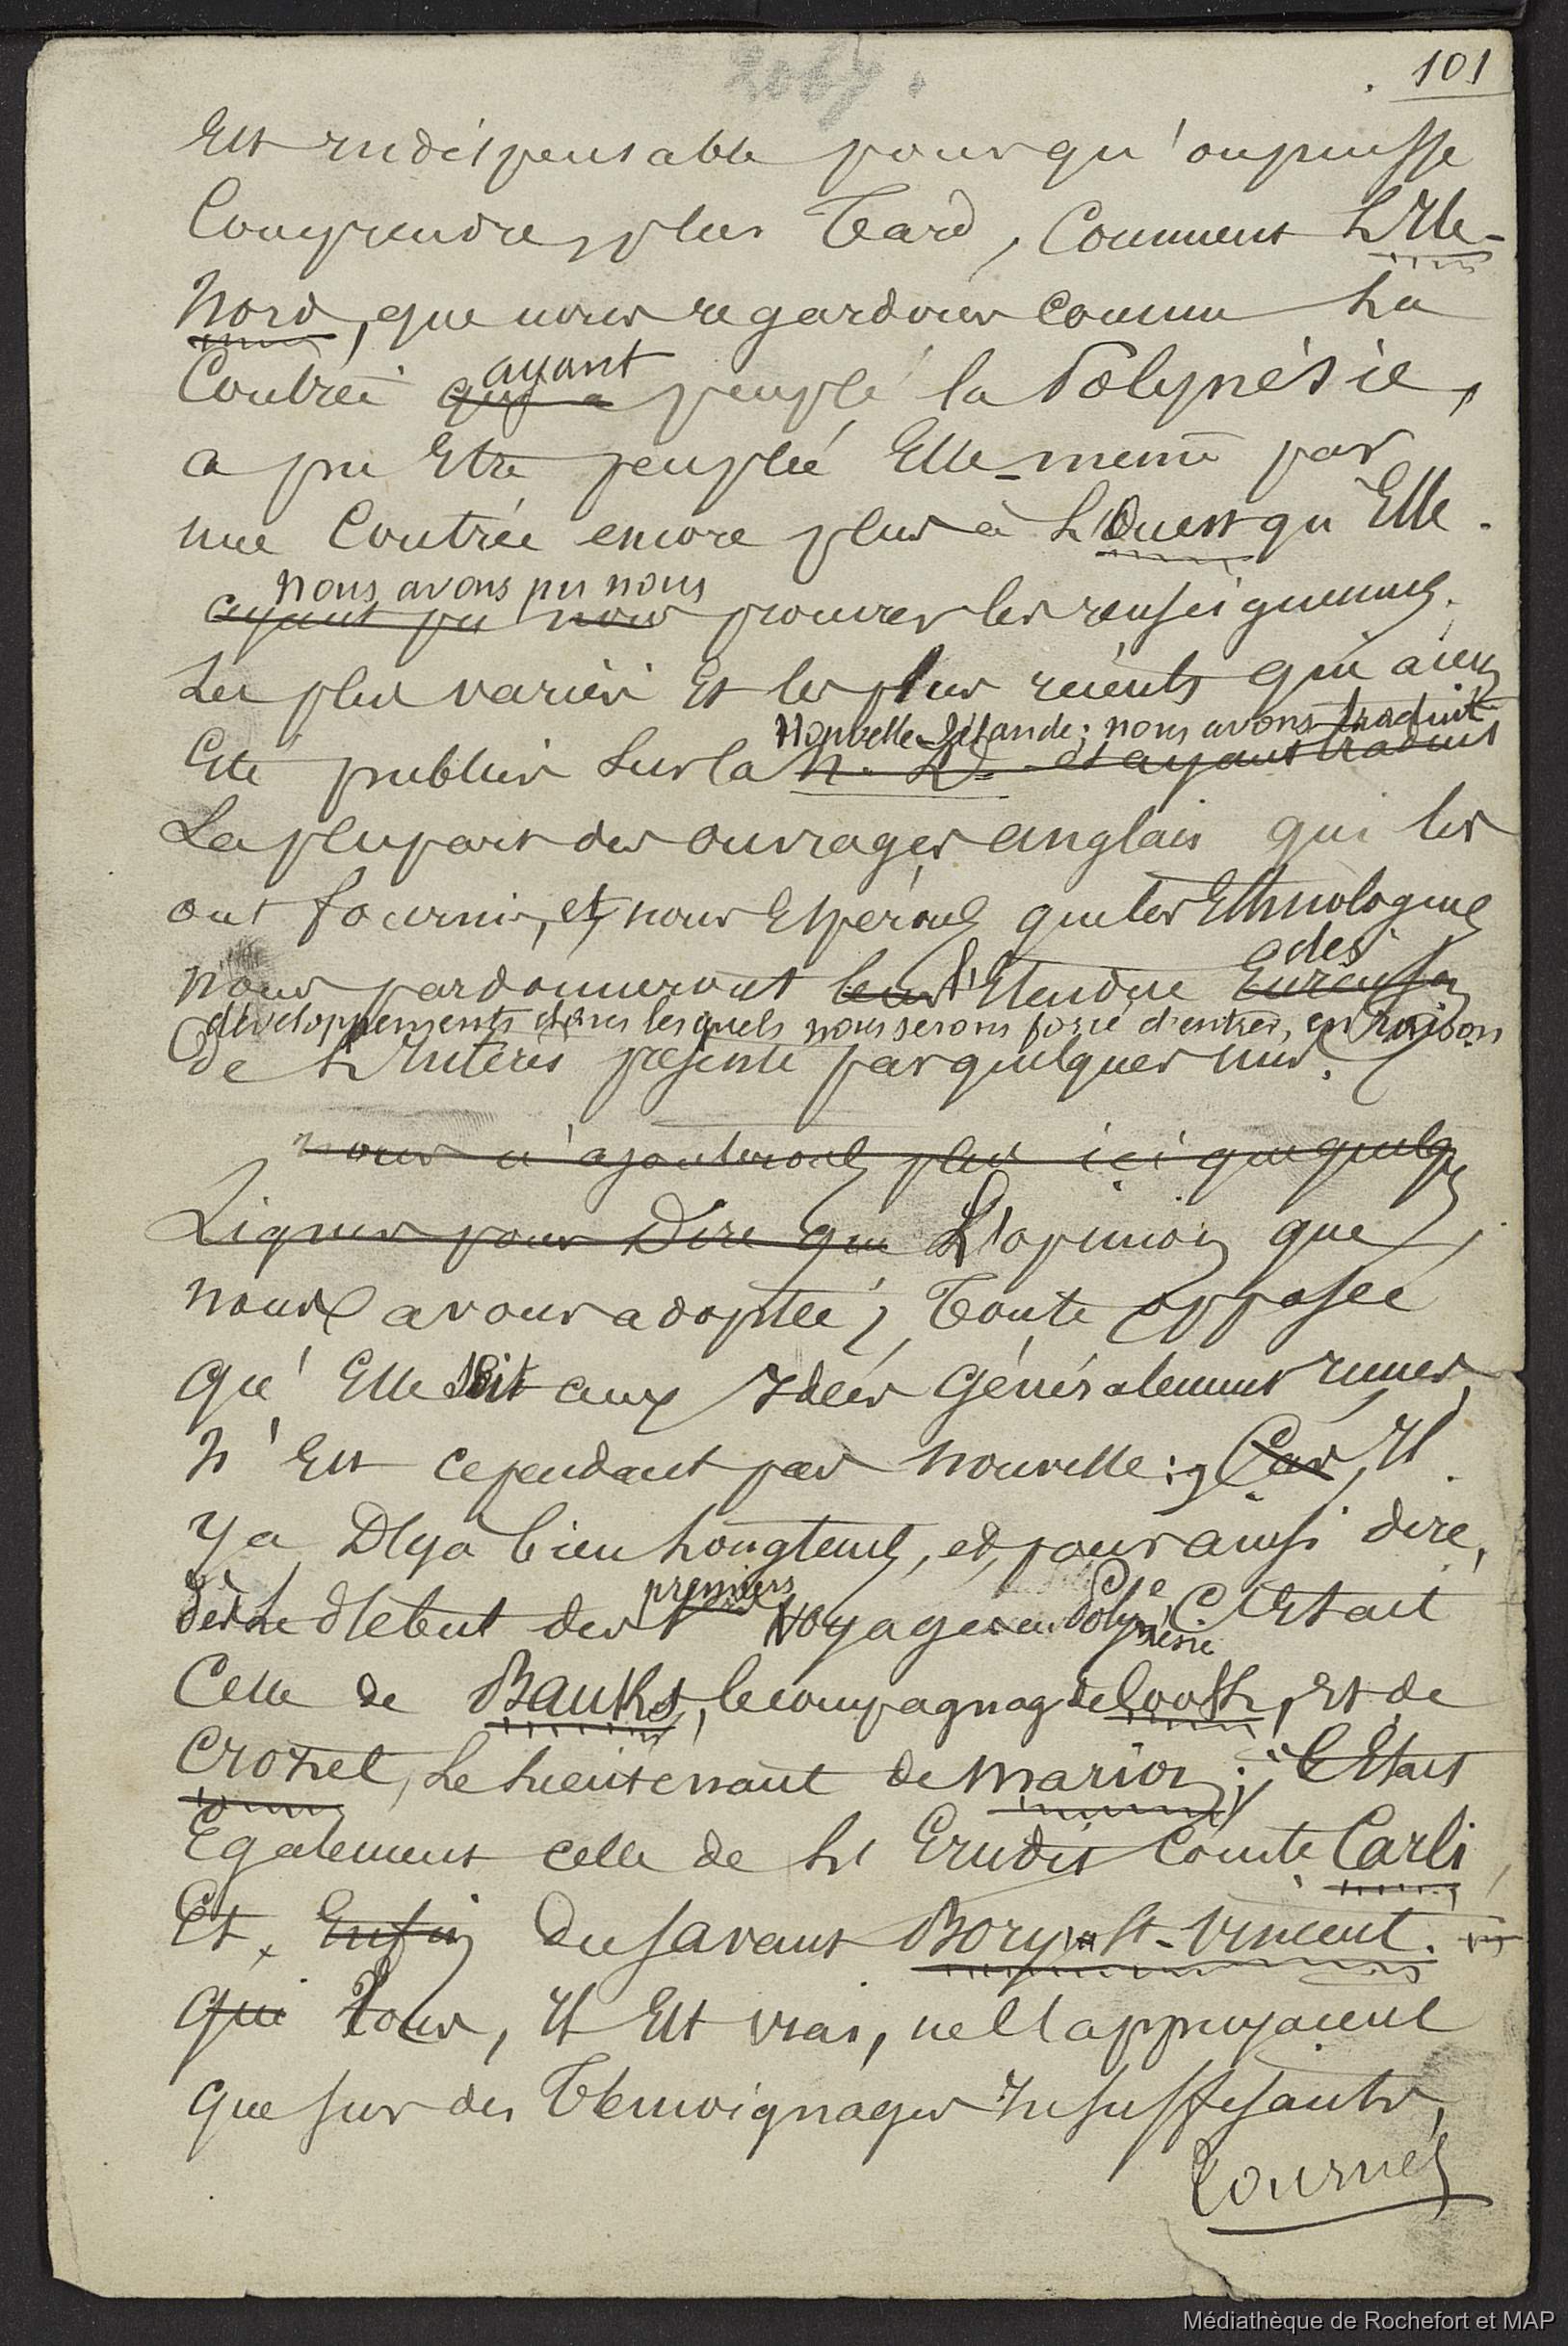 2067.
101
Est indispensable pour qu'on puisse
Comprendre, plus Tard, Comment L'Ile-
Nord, que nous regardons comme La
Contrée qui a ayant peuplé la Polynésie,
a pu Etre peuplée Elle-même par
une Contrée encore plus à L'Ouest qu'Elle.
nous avons pu nous
ayant pu nous procurer les renseignements
Les plus variés Et les plus récents qui aient
Nouvelle-Zélande; nous avons traduit
Eté publiés Sur la N. Zde et ayant traduit
La plupart des ouvrages anglais qui les
ont fournis, et nous Espérons que les Ethnologues
des
nous pardonneront leur l'Etendue En raison
développements dans lesquels nous serons forcé d'entrer, en raison
de L'Intérêt présenté par quelques uns.
nous n'ajouterons plus ici que quelques
Lignes pour Dire que L'opinion que
nous avons adoptée, Toute opposée
qu'Elle soit aux Idées Généralement reçues,
N'Est cependant pas Nouvelle: Car, Il
Y a Déjà bien Longtemps, et, pour ainsi dire,
premiers
dès Le début des Voyages en Polynésie, C'Etait
Celle de Banks, le compagnon de Cook, Et de
Crozet, Le Lieutenant de Marion; C'Etait
Egalement celle de L'Erudit Comte Carli,
Et Enfin Du savant Bory de St-Vincent.
qui Tous, Il Est vrai, ne l'appuyaient
que sur des Témoignages Insuffisants,
Tournez
Médiathèque de Rochefort et MAP